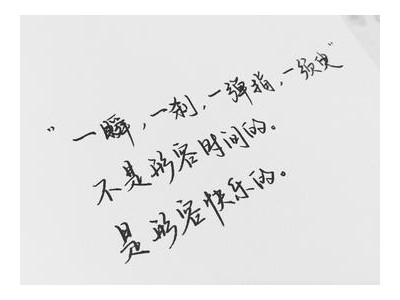 “一瞬，一刹，一弹指，一须臾”
不是形容时间的。
是形容快乐的。